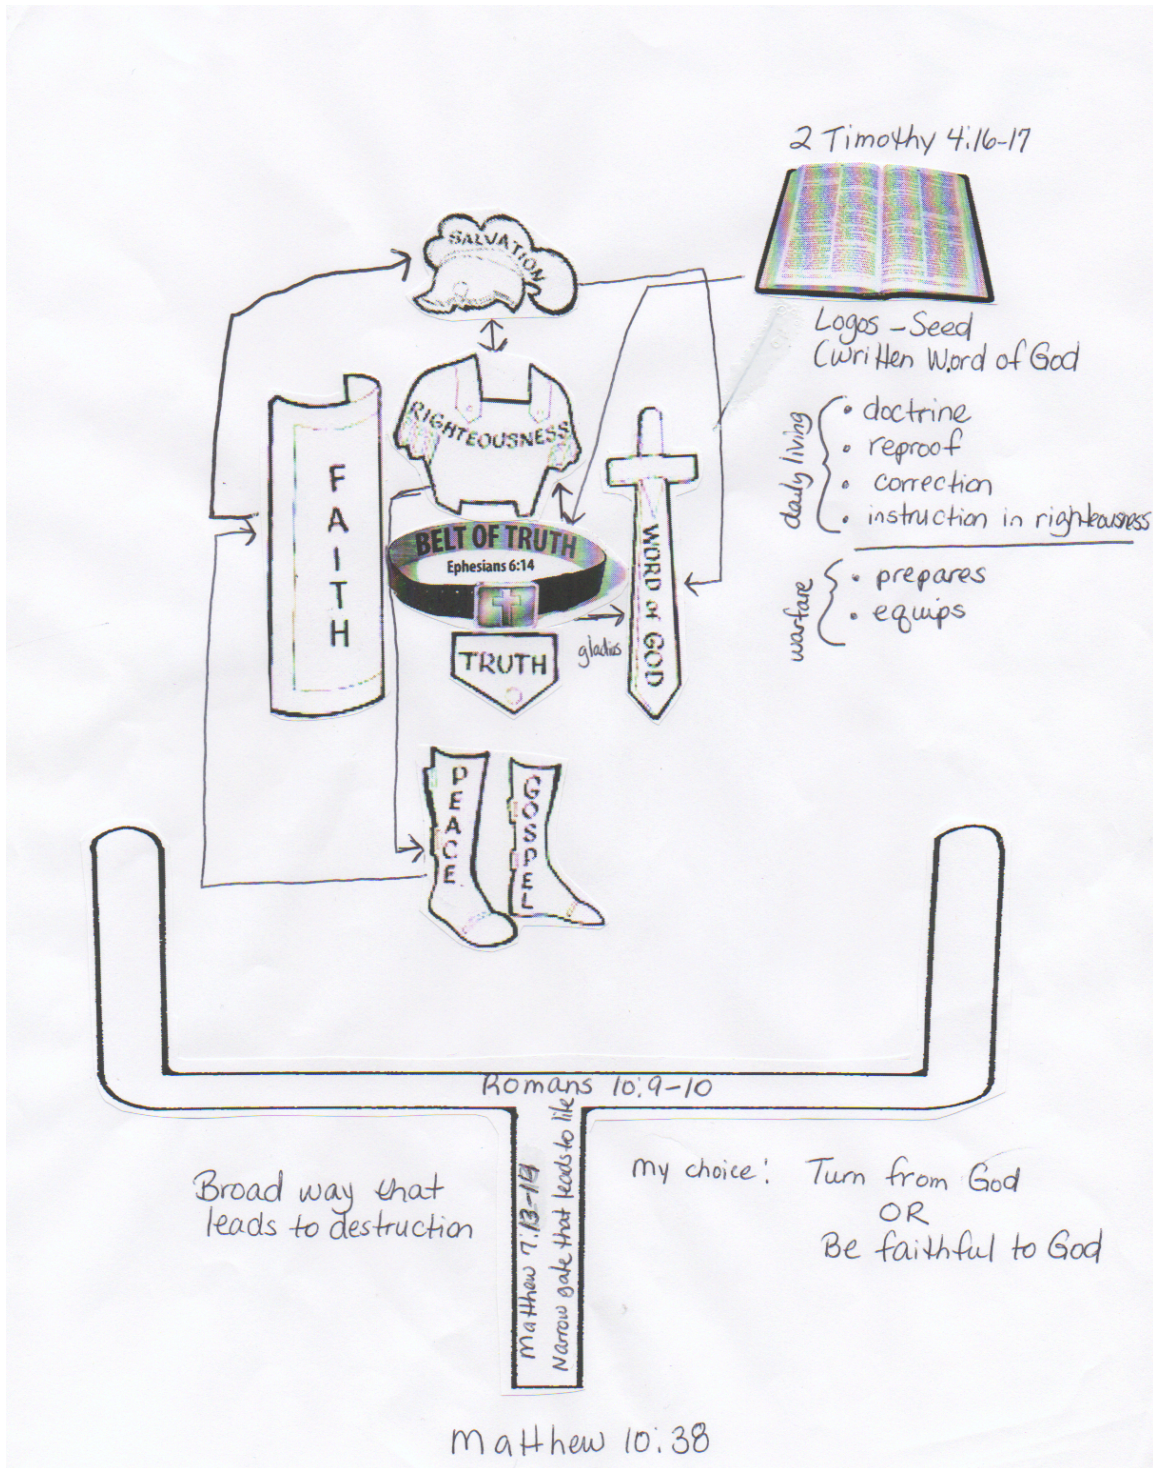 2 Timothy 4:16-17
SALVATION
Logos - Seed
(written Word of God
RIGHTEOUSNESS
daily living
• doctrine
• reproof
• correction
• instruction in righteousness
FAITH
BELT OF TRUTH
Ephesians 6:14
WORD of GOD
warfare
• prepares
• equips
gladius
TRUTH
PEACE
GOSPEL
Romans 10:9-10
Matthew 7:13-14
Narrow gate that leads to life
Broad way that
leads to destruction
my choice: Turn from God
OR
Be faithful to God
Matthew 10:38